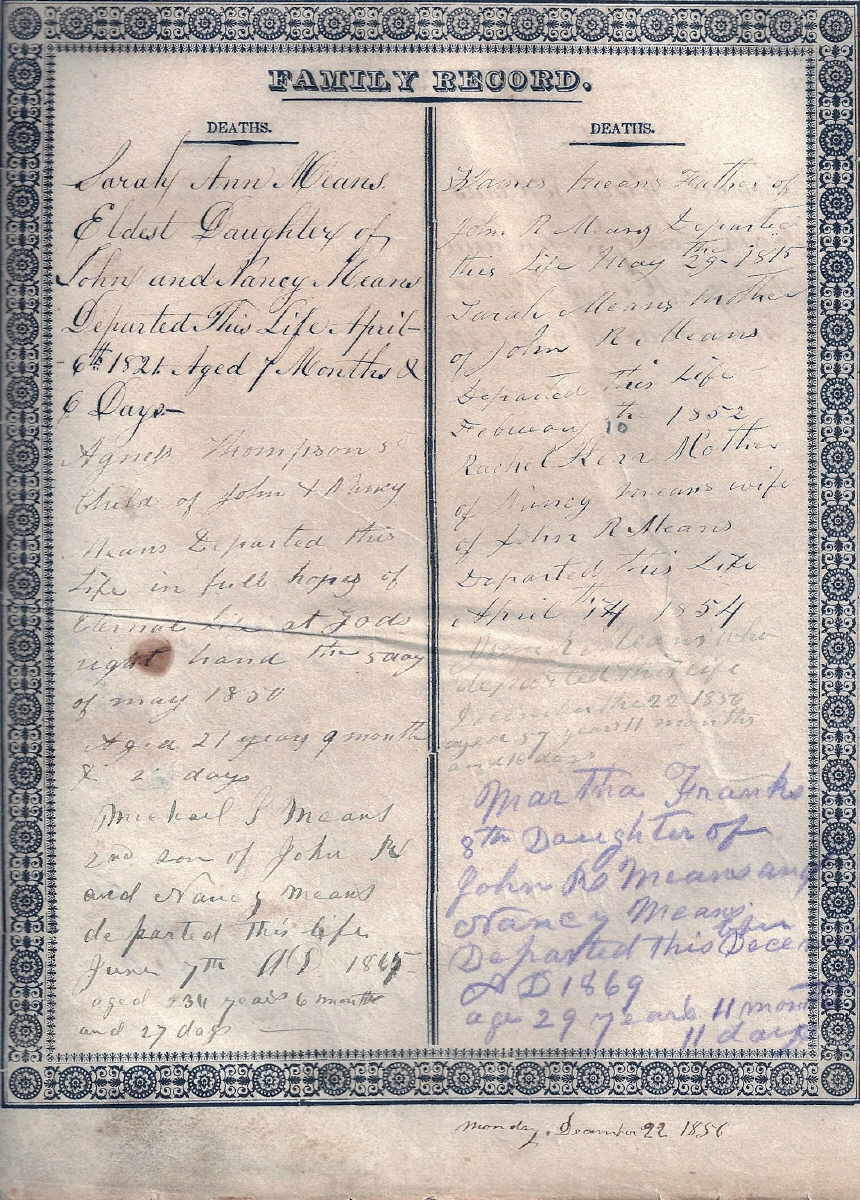 FAMILY RECORD.
DEATHS.
Sarah Ann Means
Eldest Daughter of
John and Nancy Means
Departed This Life April
6th 1821 Aged 7 Months &
6 Days
Agness Thompson 5
Child of John & Nancy
Means Departed this
Life in full hopes of
Eternal Life at Gods
right hand the 5 day
of may 1850
Aged 21 years 9 months
& 2 days
Michael S Means
2nd son of John R
and Nancy Means
departed this life
June 7th AD 1865
aged 34 years 6 months
and 27 days
DEATHS.
James Means Father of
John R Means Departed
this Life May the 29 1815
Sarah Means Mother
of John R Means
Departed this Life
February 10 th 1852
Rachel Kerr Mother
of Nancy Means wife
of John R Means
Departed this Life
April 14 th 1854
Means who
departed this life
December the 22 1856
aged 57 years 11 months
and 10 days
Martha Franks
8th Daughter of
John R Means and
Nancy Means
Departed this Decem
AD 1869
age 29 years 11 mon
11 days
Monday, December 22 1856